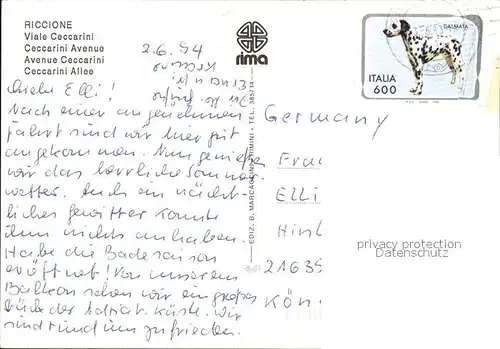 RICCIONE
Viale Ceccarini
Ceccarini Avenue
Avenue Ceccarini
Ceccarini Allee
2.6.94
rima
DALMATA
ITALIA
600
Liebe Elli!
Nach einer angenehmen
Fahrt sind wir hier gut
angekommen. Nun genießen
wir das herrliche Sommer-
wetter. Auch ein nächt-
liches Gewitter konnte
ihm nichts anhaben.
Habe die Badesaison
eröffnet! Von unserem
Balkon sehen wir ein großes
Stück der Adriat. Küste. Wir
sind rund um zufrieden.
EDIZ. B. MARCACCINI - RIMINI - TEL.
Germany
Frau
Elli
21635
privacy protection
Datenschutz